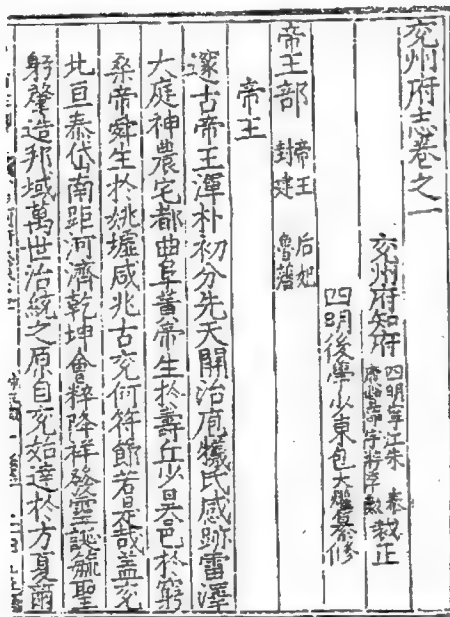 兖州府志卷之一
兖州府知府 四明寧江朱 泰 裁正
四明後學少東包大爟纂修
帝王部 帝王 后妃
封建 魯藩
帝王
邃古帝王渾朴初分先天開治庖犧氏感跡雷澤
大庭神農宅都曲阜黃帝生於壽丘少昊邑於窮
桑帝舜生於姚墟咸兆古兖何符節若是哉盖兖
北亘泰岱南距河濟乾坤會粹降祥發靈誕毓聖
躬肇造邦域萬世治統之原自兖始達於方夏爾